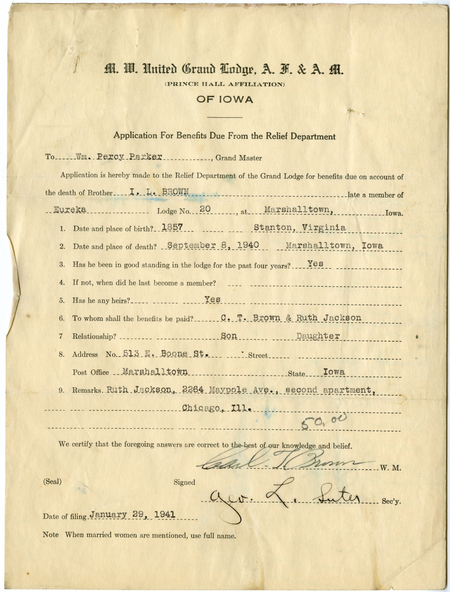 M. W. United Grand Lodge, A. F. & A. M.
(PRINCE HALL AFFILIATION)
OF IOWA
Application For Benefits Due From the Relief Department
To Wm. Percy Parker, Grand Master
Application is hereby made to the Relief Department of the Grand Lodge for benefits due on account of
the death of Brother I. L. BROWN late a member of
Eureka Lodge No. 20, at Marshalltown, Iowa.
1. Date and place of birth? 1857 Stanton, Virginia
2. Date and place of death? September 8, 1940 Marshalltown, Iowa
3. Has he been in good standing in the lodge for the past four years? Yes
4. If not, when did he last become a member?
5. Has he any heirs? Yes
6. To whom shall the benefits be paid? C. T. Brown & Ruth Jackson
7. Relationship? Son Daughter
8. Address No. 513 N. Boone St. Street
Post Office Marshalltown State Iowa
9. Remarks. Ruth Jackson, 2264 Maypole Ave., second apartment,
Chicago, Ill.
50.00
We certify that the foregoing answers are correct to the best of our knowledge and belief.
Carl T. Brown W. M.
(Seal) Signed
Geo. L. Suter Sec'y.
Date of filing January 29, 1941
Note When married women are mentioned, use full name.